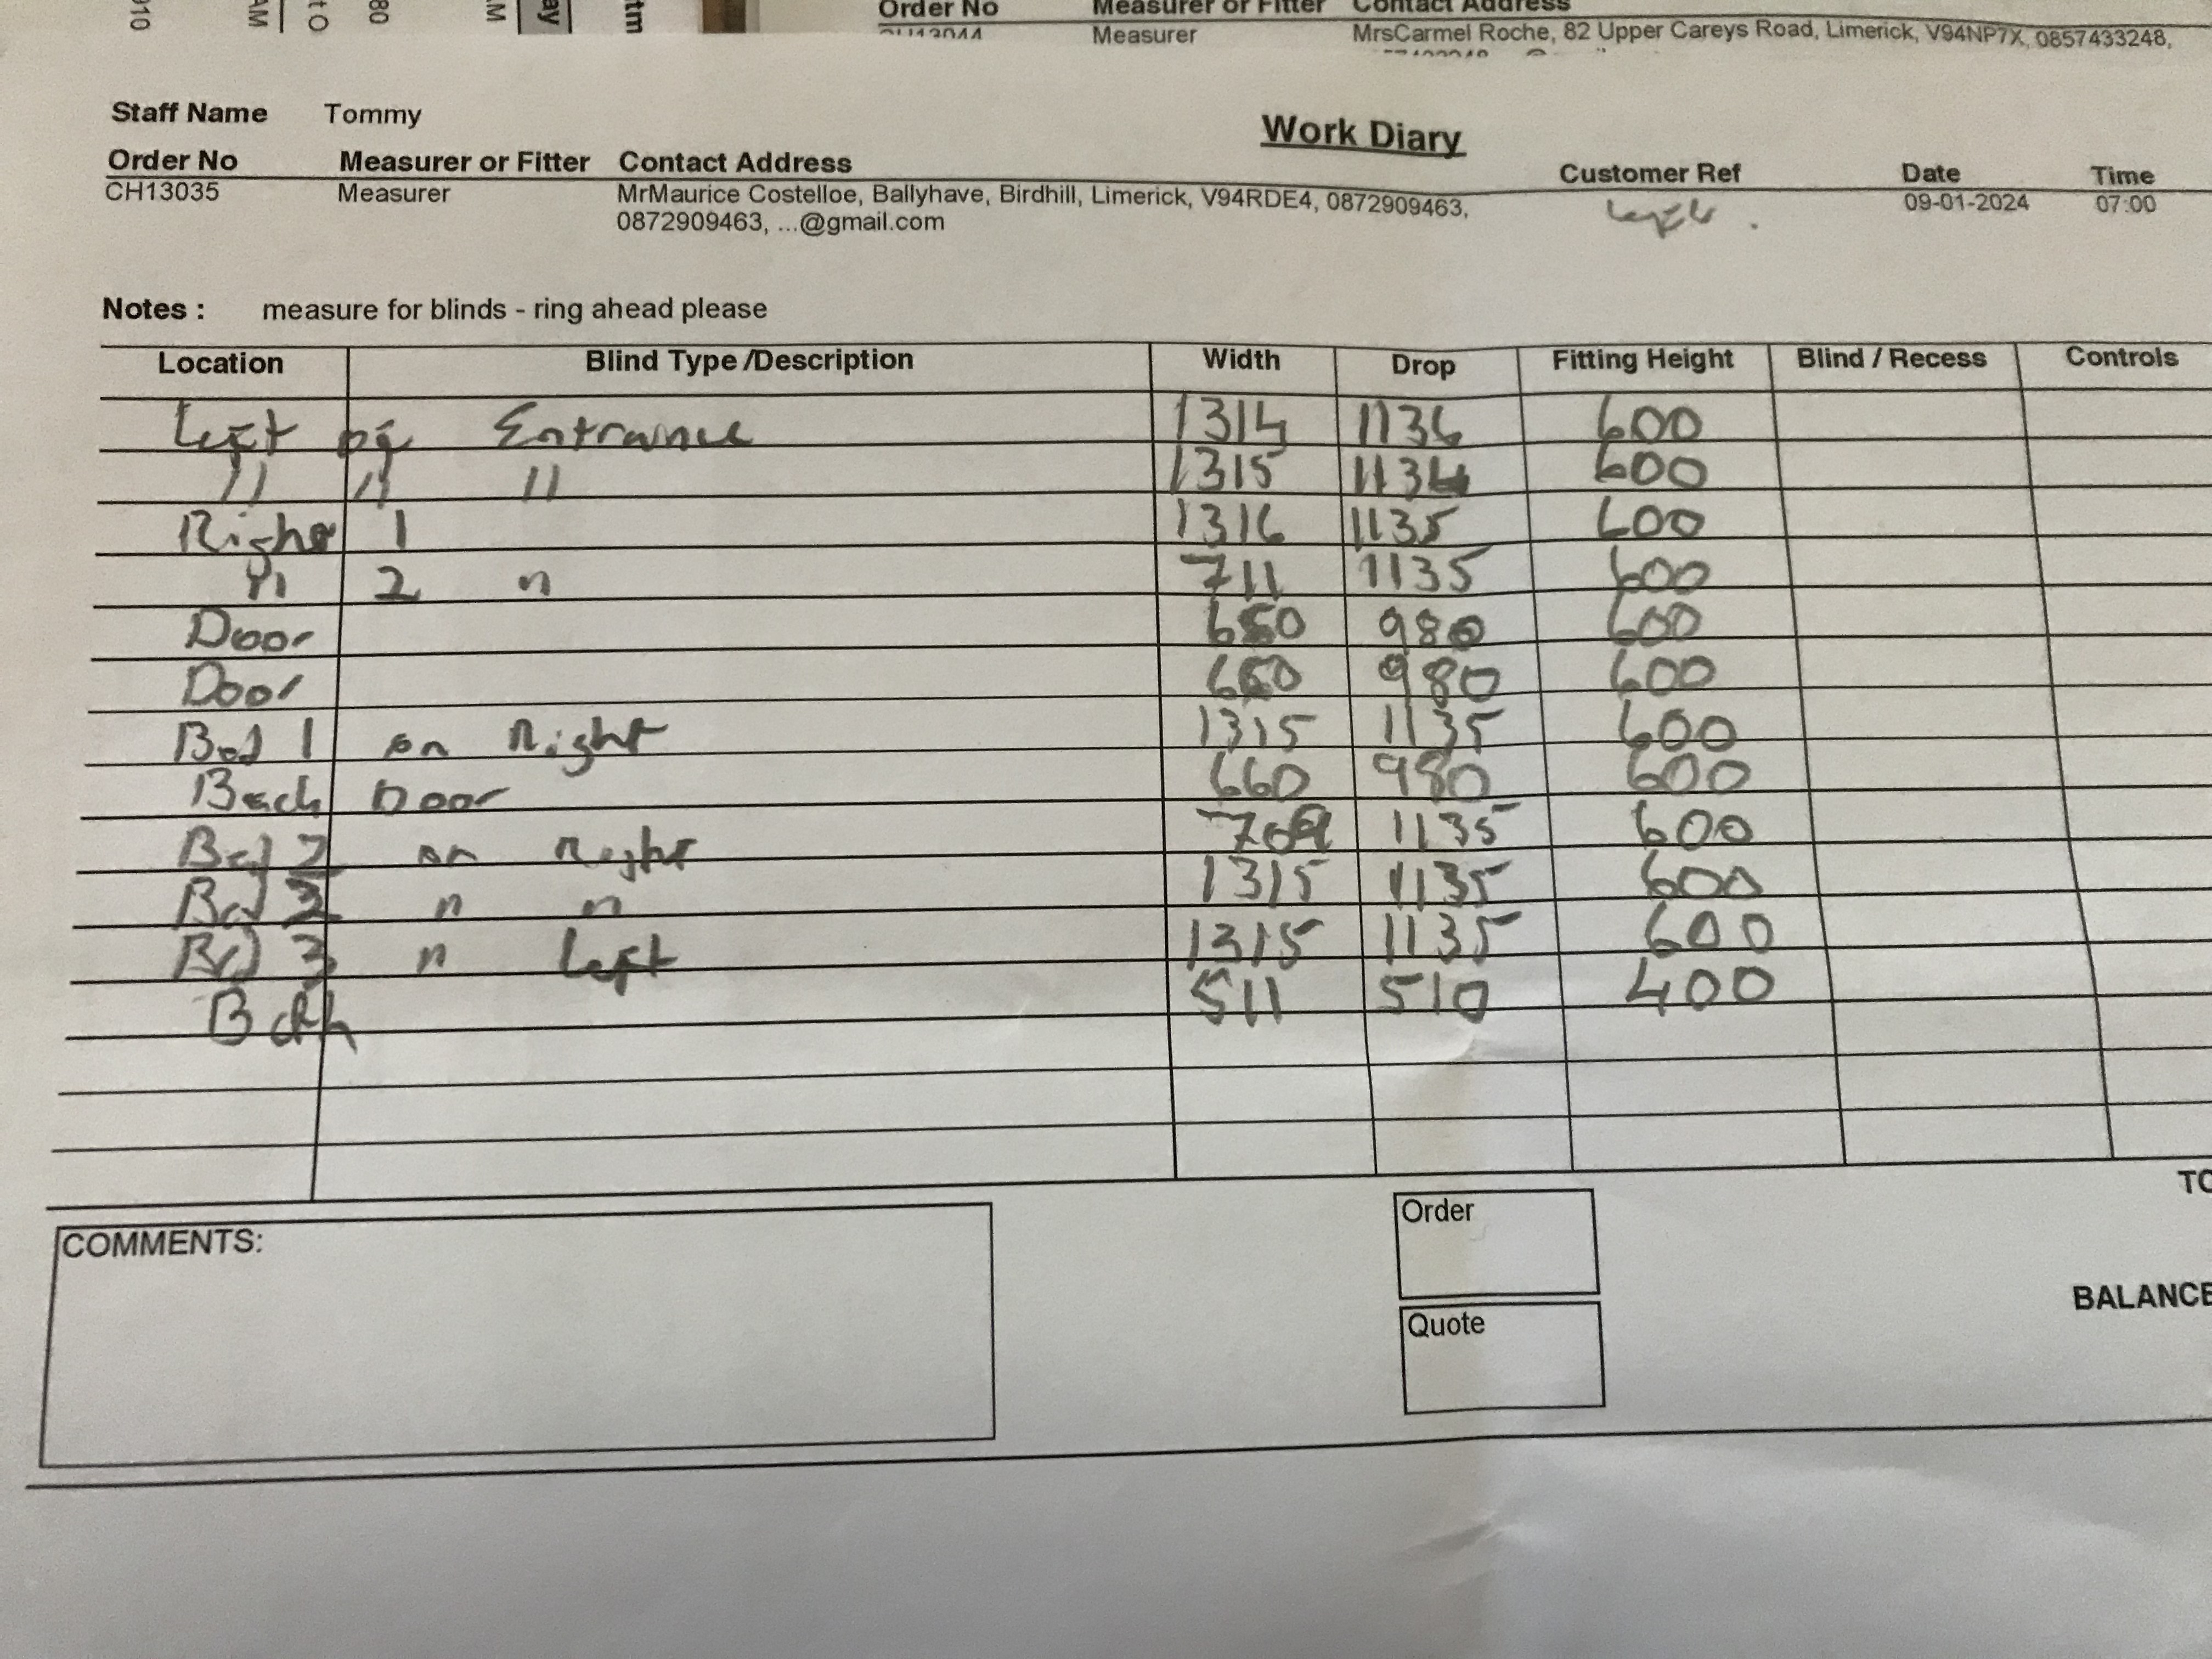 Order No Measurer or Fitter Contact Address
Measurer MrsCarmel Roche, 82 Upper Careys Road, Limerick, V94NP7X, 0857433248,
Staff Name Tommy
Work Diary
Order No Measurer or Fitter Contact Address Customer Ref Date Time
CH13035 Measurer MrMaurice Costelloe, Ballyhave, Birdhill, Limerick, V94RDE4, 0872909463, 09-01-2024 07:00
0872909463, ...@gmail.com
Notes : measure for blinds - ring ahead please
Location Blind Type /Description Width Drop Fitting Height Blind / Recess Controls
Left of Entrance 1314 1136 600
11 11 11 1315 1134 600
Right 1 1316 1135 600
" 2 " 711 1135 600
Door 980 600
Door 660 980 600
Bed 1 on Right 1315 1135 600
Back Door 660 980 600
Bed 2 on Right 709 1135 600
Bed " " 1315 1135 600
Bed 3 " Left 1315 1135 600
Bath 511 510 400
COMMENTS:
Order
Quote
BALANCE